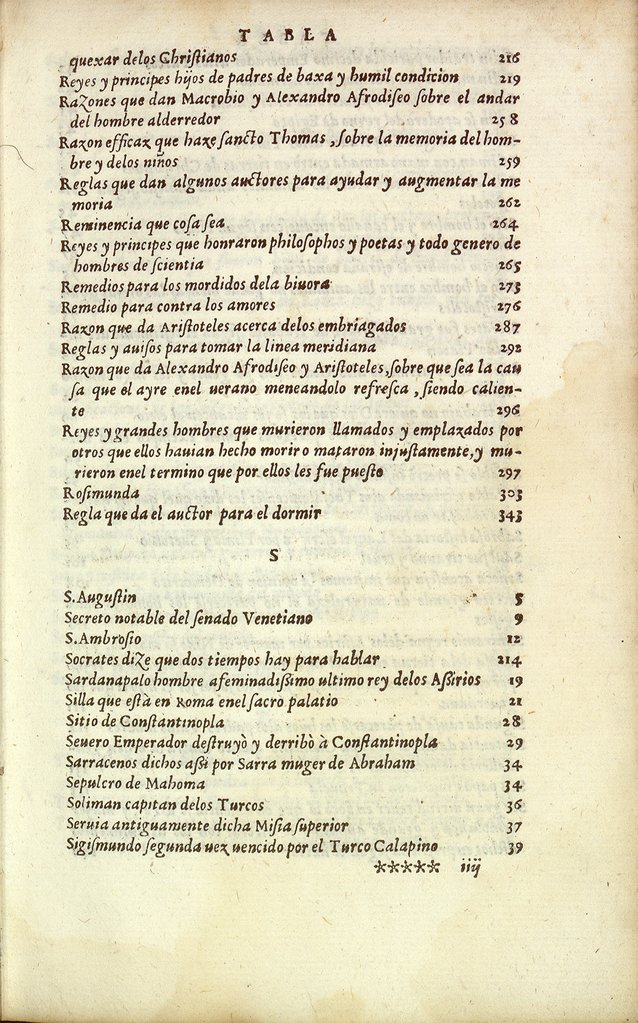 TABLA
quexar delos Chriſtianos 216
Reyes y principes hijos de padres de baxa y humil condicion 219
Razones que dan Macrobio y Alexandro Afrodiſeo ſobre el andar
del hombre alderredor 258
Razon efficaz que haze ſancto Thomas, ſobre la memoria del hom-
bre y delos niños 259
Reglas que dan algunos auctores para ayudar y augmentar la me
moria 262
Reminencia que coſa ſea 264
Reyes y principes que honraron philoſophos y poetas y todo genero de
hombres de ſcientia 265
Remedios para los mordidos dela biuora 273
Remedio para contra los amores 276
Razon que da Ariſtoteles acerca delos embriagados 287
Reglas y auiſos para tomar la linea meridiana 292
Razon que da Alexandro Afrodiſeo y Ariſtoteles, ſobre que ſea la cau
ſa que el ayre enel uerano meneandolo refreſca, ſiendo calien-
te 296
Reyes y grandes hombres que murieron llamados y emplazados por
otros que ellos hauian hecho morir o mataron injuſtamente, y mu-
rieron enel termino que por ellos les fue pueſto 297
Roſimunda 303
Regla que da el auctor para el dormir 343
S
S. Auguſtin 5
Secreto notable del ſenado Venetiano 9
S. Ambroſio 12
Socrates dize que dos tiempos hay para hablar 214
Sardanapalo hombre afeminadiſsimo ultimo rey delos Aſsirios 19
Silla que eſtà en Roma enel ſacro palatio 21
Sitio de Conſtantinopla 28
Seuero Emperador deſtruyò y derribò à Conſtantinopla 29
Sarracenos dichos aſsi por Sarra muger de Abraham 34
Sepulcro de Mahoma 34
Soliman capitan delos Turcos 36
Seruia antiguamente dicha Miſia ſuperior 37
Sigiſmundo ſegunda uez uencido por el Turco Calapino 39
***** iiij